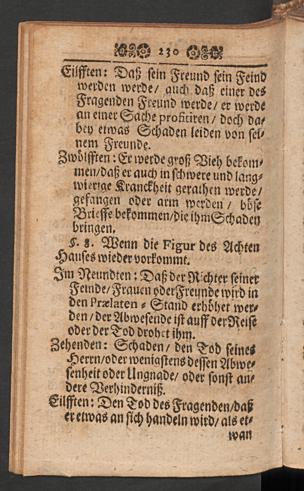 230
Eilfften: Daß sein Freund sein Feind
werden werde/ auch daß einer des
Fragenden Freund werde/ er werde
an einer Sache profitiren/ doch da-
bey etwas Schaden leiden von sei-
nem Freunde.
Zwölfften: Er werde groß Vieh bekom-
men/daß er auch in schwere und lang-
wierige Kranckheit gerathen werde/
gefangen oder arm werden / böse
Brieffe bekommen/die ihm Schaden
bringen.
§. 8. Wenn die Figur des Achten
Hauses wieder vorkommt.
Im Neundten: Daß der Richter seiner
Feinde/Frauen oder Freunde wird in
den Prælaten-Stand erhöhet wer-
den/der Abwesende ist auff der Reise
oder der Tod drohet ihm.
Zehenden: Schaden/ den Tod seines
Herrn/oder wenigstens dessen Abwe-
senheit oder Ungnade/ oder sonst an-
dere Verhinderniß.
Eilfften: Den Tod des Fragenden/daß
er etwas an sich handeln wird/ als et-
wan